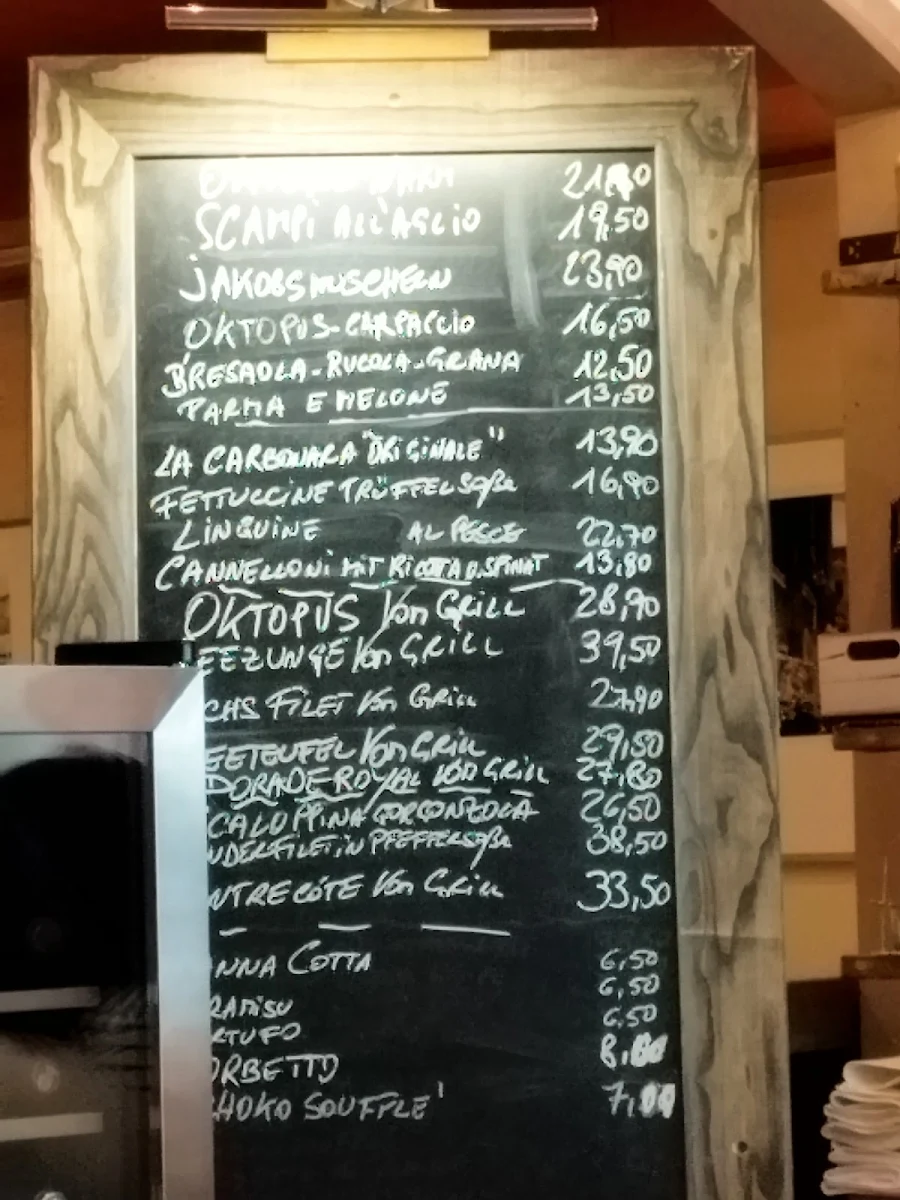 WARM
SCAMPI ALL'AGLIO 19,50
JAKOBSMUSCHELN 23,90
OKTOPUS-CARPACCIO 16,50
BRESAOLA-RUCOLA-GRANA 12,50
PARMA E MELONE 13,50
LA CARBONARA "ORIGINALE" 13,90
FETTUCCINE TRÜFFELSOßE 16,90
LINGUINE AL PESCE 22,70
CANNELLONI MIT RICOTTA U. SPINAT 13,80
OKTOPUS VOM GRILL 28,90
EEZUNGE VOM GRILL 39,50
CHS FILET VOM GRILL 27,90
EETEUFEL VOM GRILL 29,50
DORADE ROYAL VOM GRILL 27,80
CALOPPINA GORGONZOLA 26,50
NDERFILET IN PFEFFERSOßE 38,50
NTRECÔTE VOM GRILL 33,50
NNA COTTA 6,50
RAMISU 6,50
RTUFO 6,50
ORBETTO
HOKO SOUFFLE' 7,00